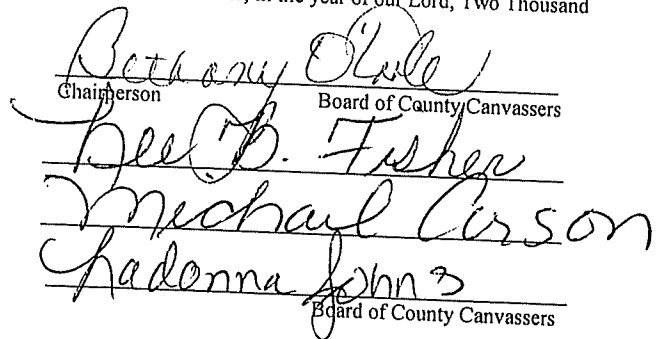 in the year of our Lord, Two Thousand
Bethany
Chairperson Board of County Canvassers
Lee B. Fisher
Michael Corson
Ladonna Johns
Board of County Canvassers